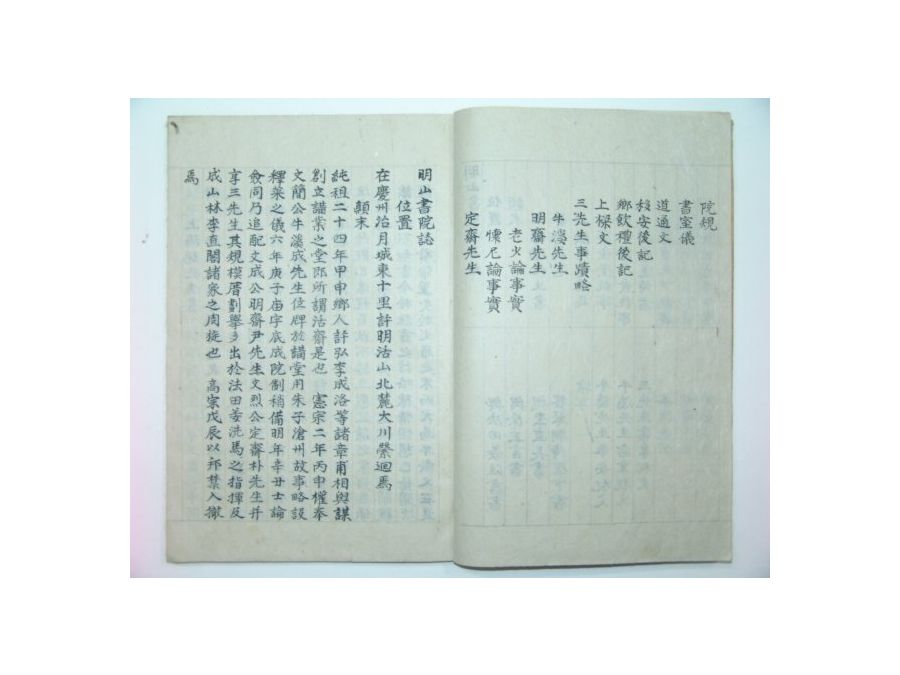 院規
書室儀
道通文
妥安後記
鄉飲禮後記
上樑文
三先生事蹟略
牛溪先生
明齋先生
老少論事實
懷尼論事實
定齋先生
明山書院誌
位置
在慶州治月城東十里許明活山北麓大川縈迴焉
顛末
純祖二十四年甲申鄉人許弘李成洛等諸章甫相與謀
創立講業之堂卽所謂活齋是也 憲宗二年丙申權奉
文簡公牛溪成先生位牌於講堂用朱子滄州故事略設
釋菜之儀六年庚子庙宇底成院制稍備明年辛丑士論
僉同乃追配文成公明齋尹先生文烈公定齋朴先生幷
享三先生其規模厝劃擧多出於法田姜洗馬之指揮及
成山林李直閣諸家之周旋也 高宗戊辰以邦禁入撤
焉